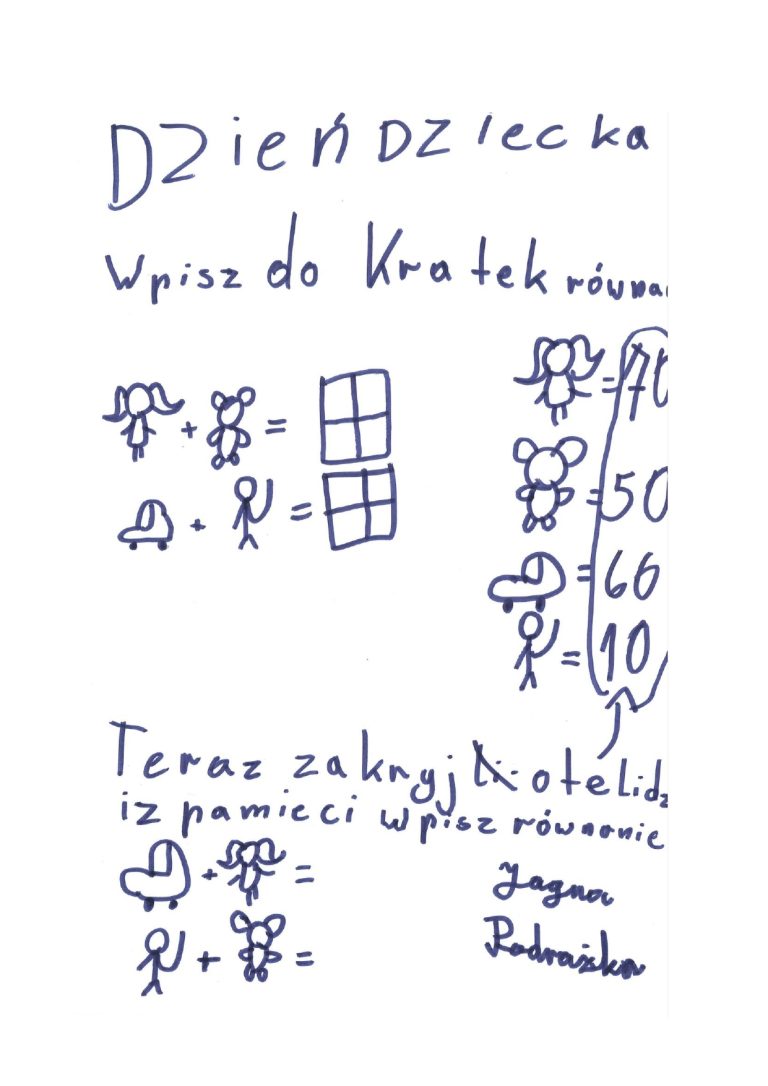 Dzień Dziecka
Wpisz do Kratek równa
+ =
= 70
+ =
= 50
= 60
= 10
Teraz zakryj te lidz
iz pamieci wpisz równanie
+ =
Jagna
+ =